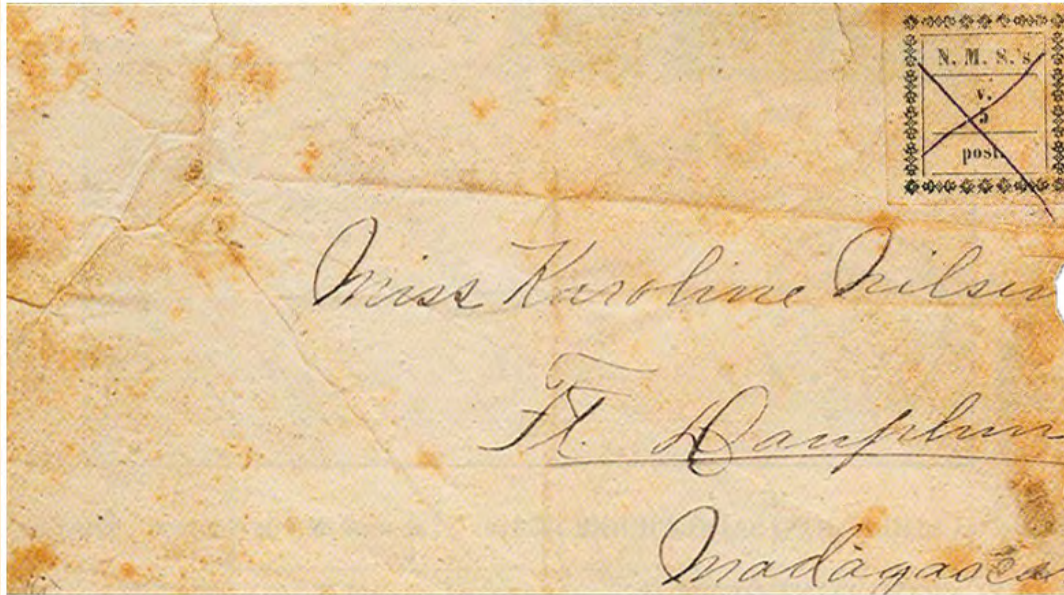 N. M. S.'s
v.
5
post.
Miss Karoline Nilsen
Ft. Dauphin
Madagascar